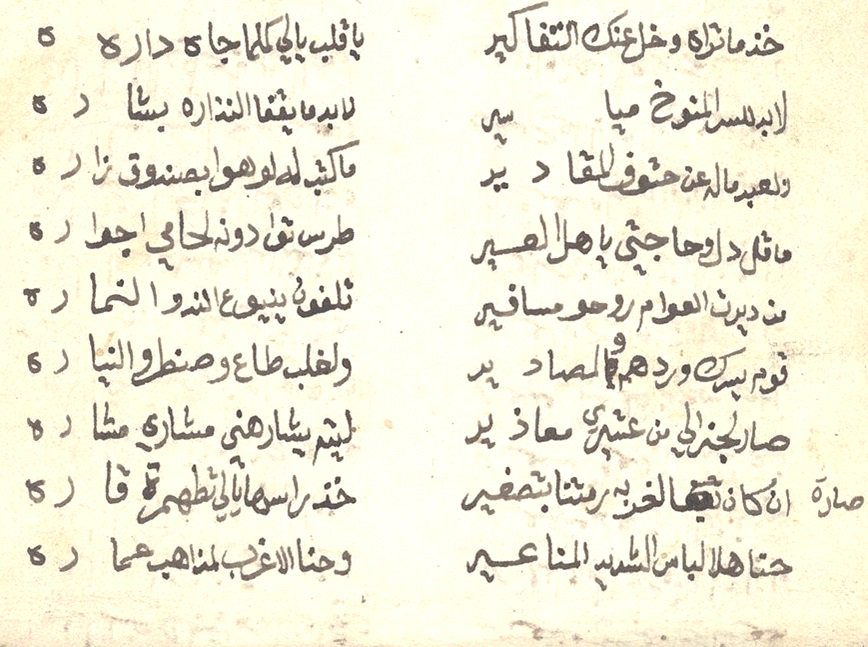 خذ ماتراه وخل عنك التفاكير ياقلب يالي كلما جاه داره ه
لابد للسر المنوخ ميا سير لابد ما يقفا النذاره بشا ره
ولعبد ماله عن حتوف المقا د ير ما كتب له لو هوا بصندوق زا ره
ما قل دل وحاجتي ياهل العسير طرس توا دونه لحامي اجوا ره
من ديرت العوام روحو مسافير تلفون ينبوع الندو النما ره
قوم يسرك وردهم والمصاد ير ولغلب طاع وصنطر والنيا ره
صار لجنرالي من عشيري معاذ ير ليتم بشار هني مشاري مشا ره
ان كان لغربه رمتنا بتصغير خذ راسها يالي تطهر قا ره
صارة
حنا هلا لباس الشديد المناعسير وحنا الاغرب لمذاهب عما ره